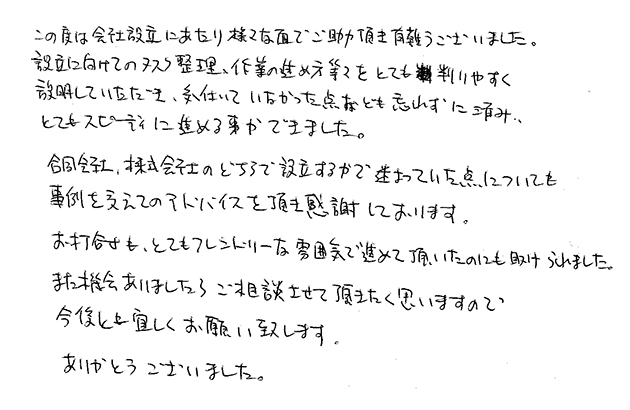 この度は会社設立にあたり様々な面でご助力頂き有難うございました。
設立に向けてのタスク整理、作業の進め方等々をとても判りやすく
説明していただき、気付いていなかった点なども忘れずに済み、
とてもスピーディに進める事ができました。
合同会社、株式会社のどちらで設立するかで迷っていた点についても
事例を交えてのアドバイスを頂き感謝しております。
お打合せも、とてもフレンドリーな雰囲気で進めて頂いたのにも助けられました。
また機会ありましたらご相談させて頂きたく思いますので
今後とも宜しくお願い致します。
ありがとうございました。